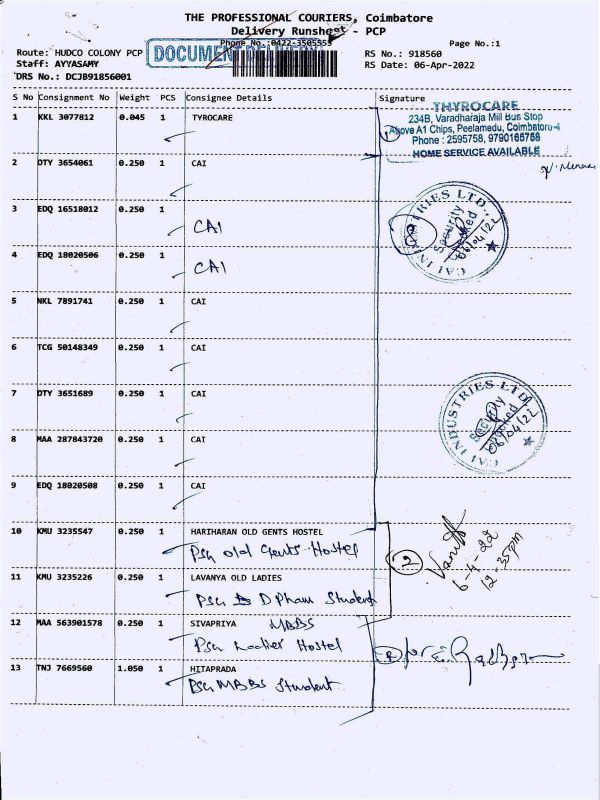 THE PROFESSIONAL COURIERS, Coimbatore
Delivery Runsheet - PCP
Phone No.:0422-3505555
Page No.:1
Route: HUDCO COLONY PCP
DOCUMENT DELIVERY
RS No.: 918560
Staff: AYYASAMY
RS Date: 06-Apr-2022
DRS No.: DCJB91856001
S No Consignment No Weight PCS Consignee Details Signature
1 KKL 3077812 0.045 1 TYROCARE
THYROCARE
234B, Varadharaja Mill Bus Stop
Above A1 Chips, Peelamedu, Coimbatore-4
Phone : 2595758, 9790165758
HOME SERVICE AVAILABLE
2 DTY 3654061 0.250 1 CAI
3 EDQ 16518012 0.250 1
CAI
8
CAI INDUSTRIES LTD.,
Security
Checked
06/04/22
4 EDQ 18020506 0.250 1
CAI
5 NKL 7891741 0.250 1 CAI
6 TCG 50148349 0.250 1 CAI
7 DTY 3651689 0.250 1 CAI
CAI INDUSTRIES LTD
Security
Checked
06/04/22
8 MAA 287843720 0.250 1 CAI
9 EDQ 18020508 0.250 1 CAI
10 KMU 3235547 0.250 1 HARIHARAN OLD GENTS HOSTEL
PSG Old Gents Hostel
2
6-4-22
12-35pm
11 KMU 3235226 0.250 1 LAVANYA OLD LADIES
PSG D Pham Student
12 MAA 563901578 0.250 1 SIVAPRIYA MBBS
PSG Ladies Hostel
13 TNJ 7669560 1.050 1 HITAPRADA
PSG MBBS Student